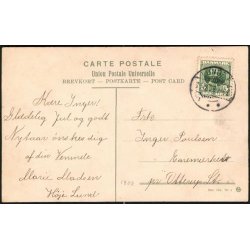 CARTE POSTALE
Union Postale Universelle
BREVKORT - POSTKARTE - POST CARD
Kære Inger!
Glædelig Jul og godt
Nytaar önskes dig
af din Veninde
Marie Madsen
Höje Lund
Frk.
Inger Poulsen
pr. Otterup St.